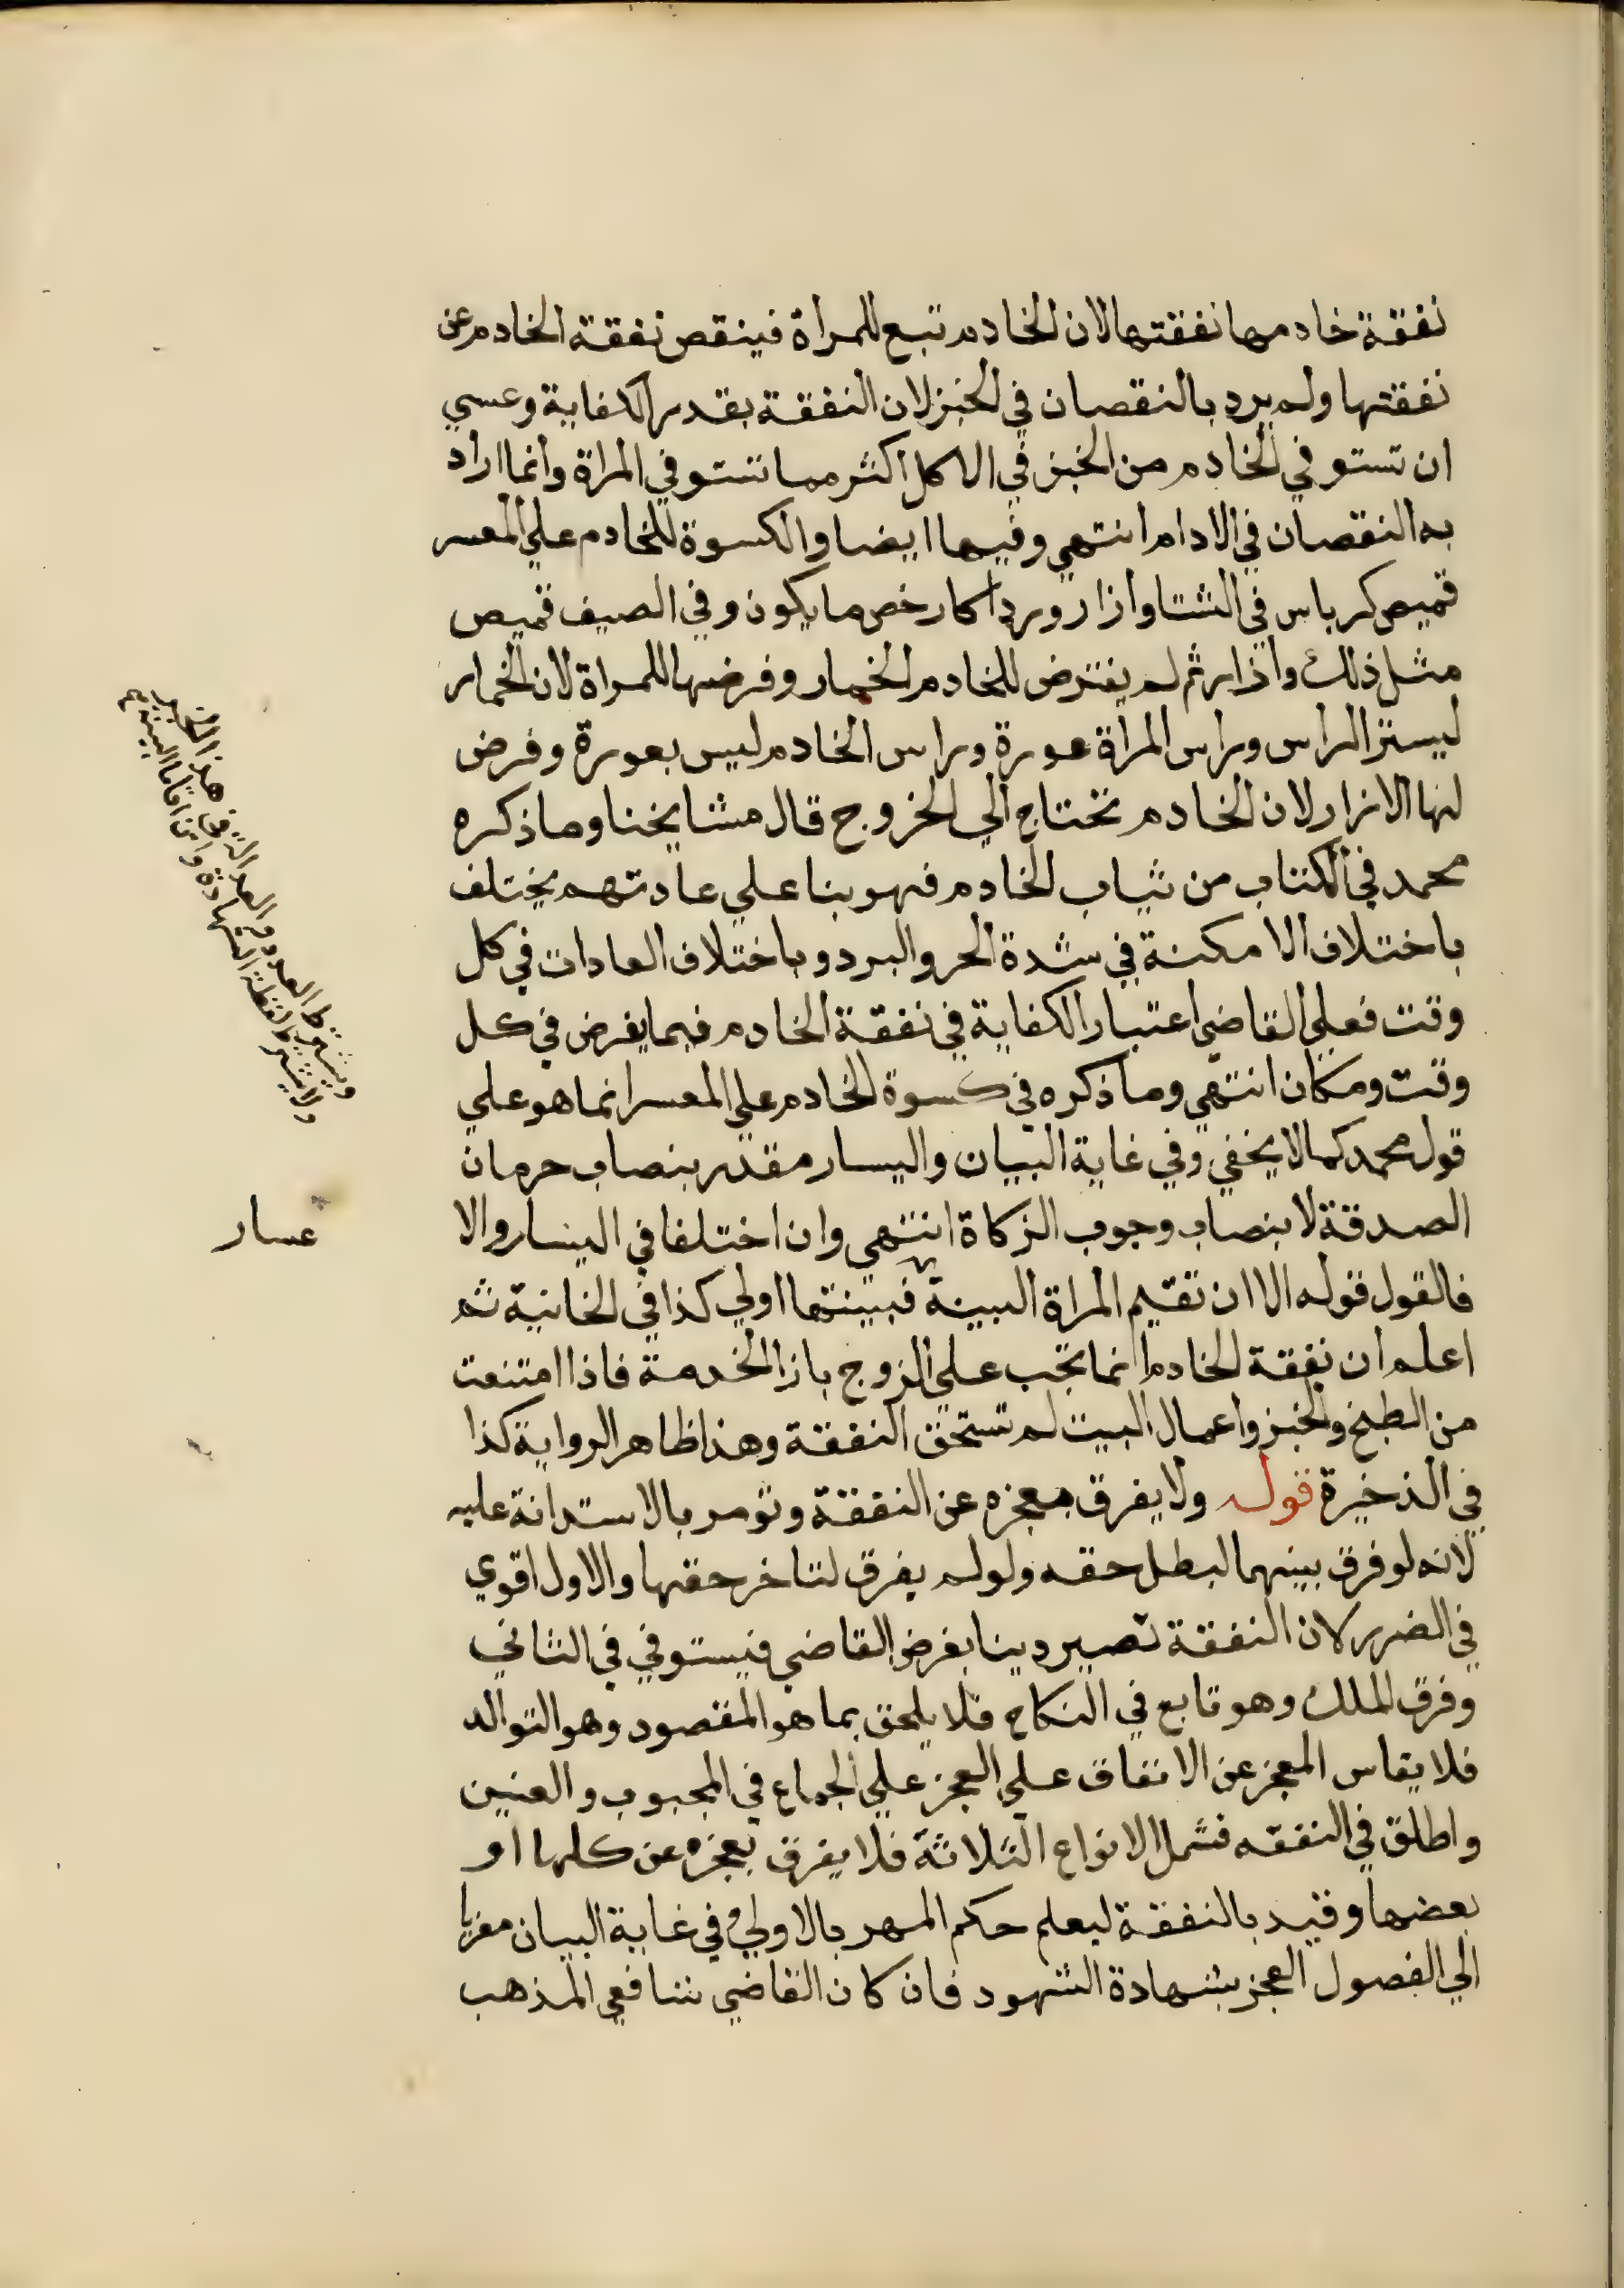 نفقة خادمها نفقتها لان الخادم تبع للمراة فينقص نفقة الخادم عن
نفقتها ولم يرد بالنقصان في الخبز لان النفقة بقدر الكفاية وعسي
ان تستوفي الخادم من الخبز في الاكل اكثر مما تستوفي المراة وانما اراد
به النقصان في الادام انتهي وفيها ايضا والكسوة للخادم علي المعسر
قميص كرباس في الشتا وازار وردا كارخص ما يكون وفي الصيف قميص
مثل ذلك وازار ثم لم يفترض للخادم الخمار وفرضها للمراة لان الخمار
ليستر الراس وراس المراة عورة وراس الخادم ليس بعورة وفرض
لها الازار لان الخادم تحتاج الي الخروج قال مشايخنا وما ذكره
محمد في الكتاب من ثياب الخادم فهو بنا علي عادتهم يختلف
باختلاف الامكنة في شدة الحر والبرد وباختلاف العادات في كل
وقت فعلي القاضي اعتبار الكفاية في نفقة الخادم فيما يفرض في كل
وقت ومكان انتهي وما ذكره في كسوة الخادم علي المعسر انما هو علي
قول محمد كما لا يخفي وفي غاية البيان واليسار مقدر بنصاب حرمان
الصدقة لا بنصاب وجوب الزكاة انتهي وان اختلفا في اليسار والا
عسار
فالقول قوله الا ان تقيم المراة البينة فبينتها اولي كذا في الخانية ثم
اعلم ان نفقة الخادم انما تجب علي الزوج بازا الخدمة فاذا امتنعت
من الطبخ والخبز واعمال البيت لم تستحق النفقة وهذا ظاهر الرواية كذا
في الذخيرة قوله ولا يفرق بعجزه عن النفقة وتومر بالاستدانة عليه
لانه لو فرق بينهما لبطل حقه ولو لم يفرق لتاخر حقها والاول اقوي
في الضرر لان النفقة تصير دينا بفرض القاضي فيستوفي في الثاني
وفرق الملك وهو تابع في النكاح فلا يلحق بما هو المقصود وهو التوالد
فلا يقاس المعجز عن الانفاق علي العجز علي الجماع في المجبوب والعنين
واطلق في النفقه فشمل الانواع الثلاثة فلا يفرق بعجزه عن كلها او
بعضها وقيد بالنفقة ليعلم حكم المهر بالاولي وفي غاية البيان معزيا
الي الفصول العجز بشهادة الشهود فان كان القاضي شافعي المذهب
ويشترط العدد والعدالة في هذا الخبر
ولا يشترط لفظة الشهادة وان اقاما البينة